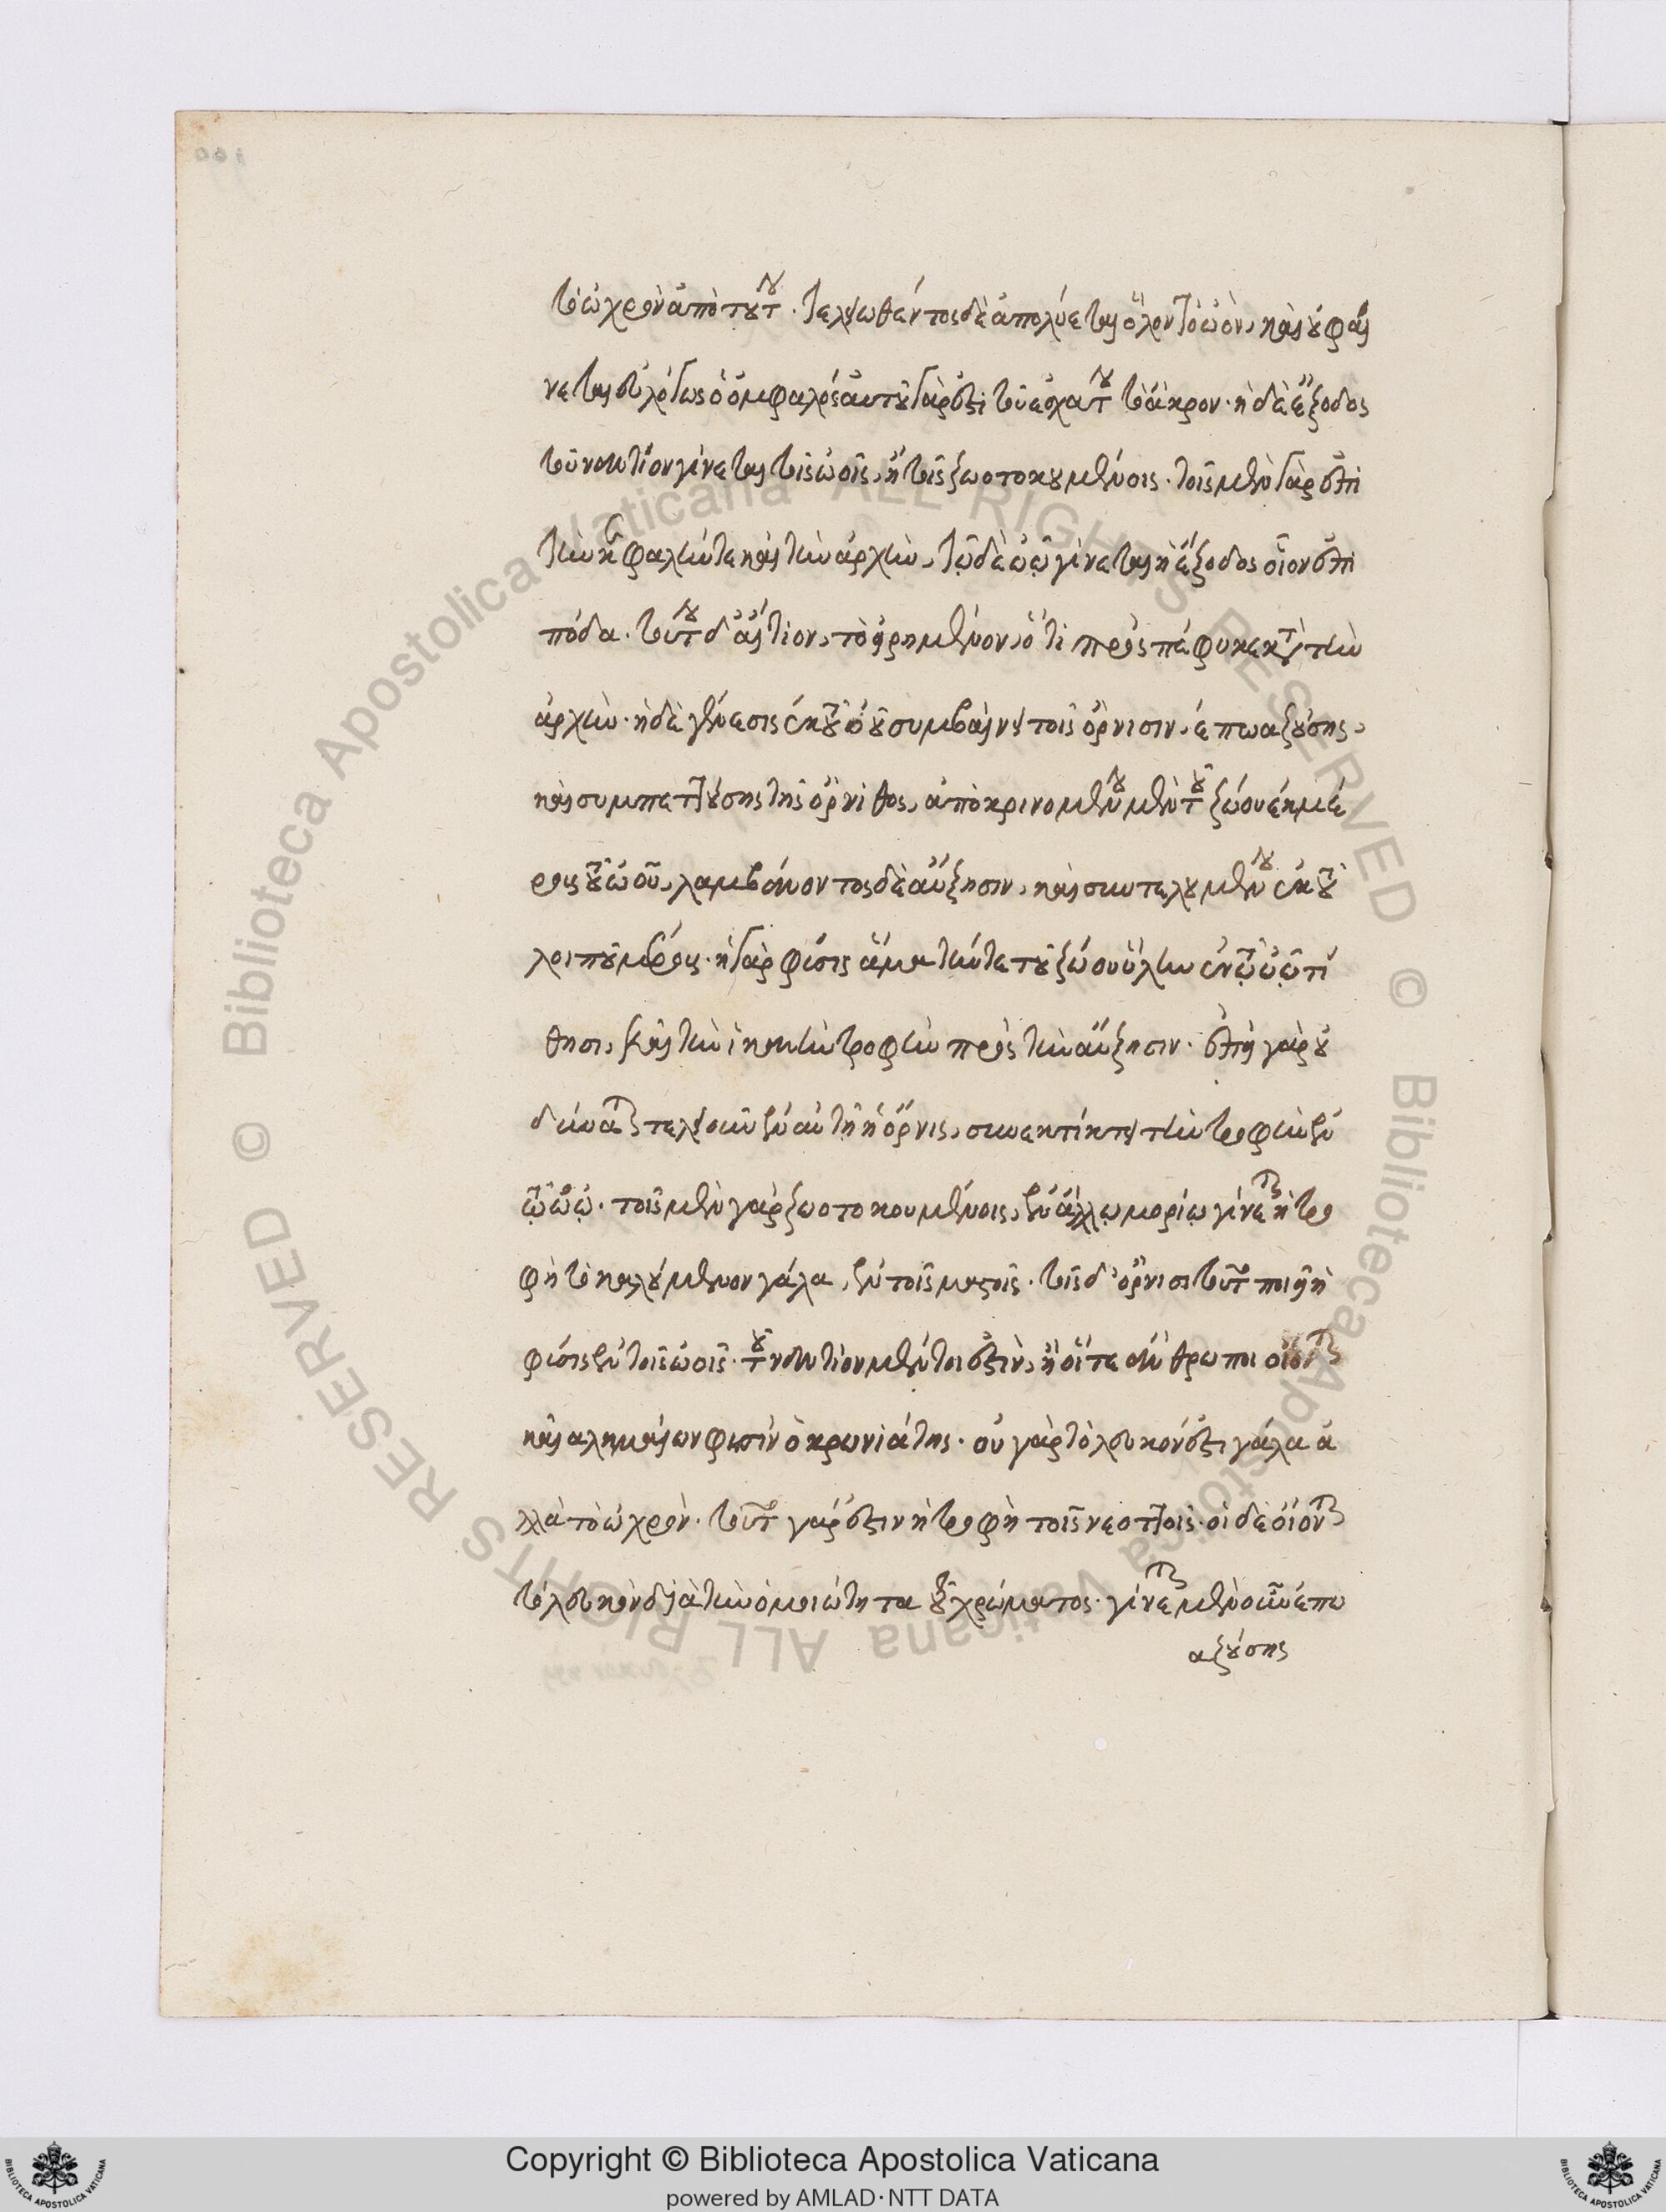 τὸ ὠχρὸν ἀπὸ τούτου. τελεωθέντος δὲ ἀπολύεται ὅλον τὸ ὠὸν, καὶ οὐ φαί
νεται εὐλόγως ὁ ὀμφαλός αὐτοῦ γάρ ἐστι τοῦ ἐσχάτου τὸ ἄκρον. ἡ δὲ ἔξοδος
τοὐναντίον γίνεται τοῖς ὠοῖς, ἢ τοῖς ζωοτοκουμένοις. τοῖς μὲν γὰρ ἐπὶ
τὴν κεφαλήν τε καὶ τὴν ἀρχὴν, τῷ δὲ ὠῷ γίνεται ἡ ἔξοδος οἷον ἐπὶ
πόδα. τούτου δ' αἴτιον, τὸ εἰρημένον, ὅτι προσπέφυκε κατὰ τὴν
ἀρχὴν. ἡ δὲ γένεσις ἐκ τοῦ ὠοῦ συμβαίνει τοῖς ὄρνισιν, ἐπωαζούσης,
καὶ συμπεττούσης τῆς ὄρνιθος, ἀποκρινομένου μὲν τοῦ ζώου ἐκ μέ
ρους τοῦ ὠοῦ, λαμβάνοντος δὲ αὔξησιν, καὶ συντελουμένου ἐκ τοῦ
λοιποῦ μέρους. ἡ γὰρ φύσις ἅμα τήν τε τοῦ ζώου ὕλην ἐν τῷ ὠῷ τί
θησι, καὶ τὴν ἱκανὴν τροφὴν πρὸς τὴν αὔξησιν. ἐπεὶ γὰρ οὐ
δύναται τελεοῦν ἐν αὑτῇ ἡ ὄρνις, συνεκτίκτει τὴν τροφὴν ἐν
τῷ ὠῷ. τοῖς μὲν γὰρ ζωοτοκουμένοις, ἐν ἄλλῳ μορίῳ γίνεται ἡ τρο
φὴ τὸ καλούμενον γάλα, ἐν τοῖς μαστοῖς. τοῖς δ' ὄρνισι τοῦτο ποιεῖ ἡ
φύσις ἐν τοῖς ὠοῖς. τοὐναντίον μέντοι ἐστὶν, ἢ οἵ τε ἄνθρωποι οἴονται
καὶ ἀλκμαίων φησὶν ὁ κρωνιάτης. οὐ γὰρ τὸ λευκόν ἐστι γάλα ἀ
λλὰ τὸ ὠχρὸν. τοῦτο γάρ ἐστιν ἡ τροφὴ τοῖς νεοττοῖς. οἱ δὲ οἴονται
τὸ λευκὸν διὰ τὴν ὁμοιότητα τοῦ χρώματος. γίνεται μὲν οὖν ἐπω
αζούσης